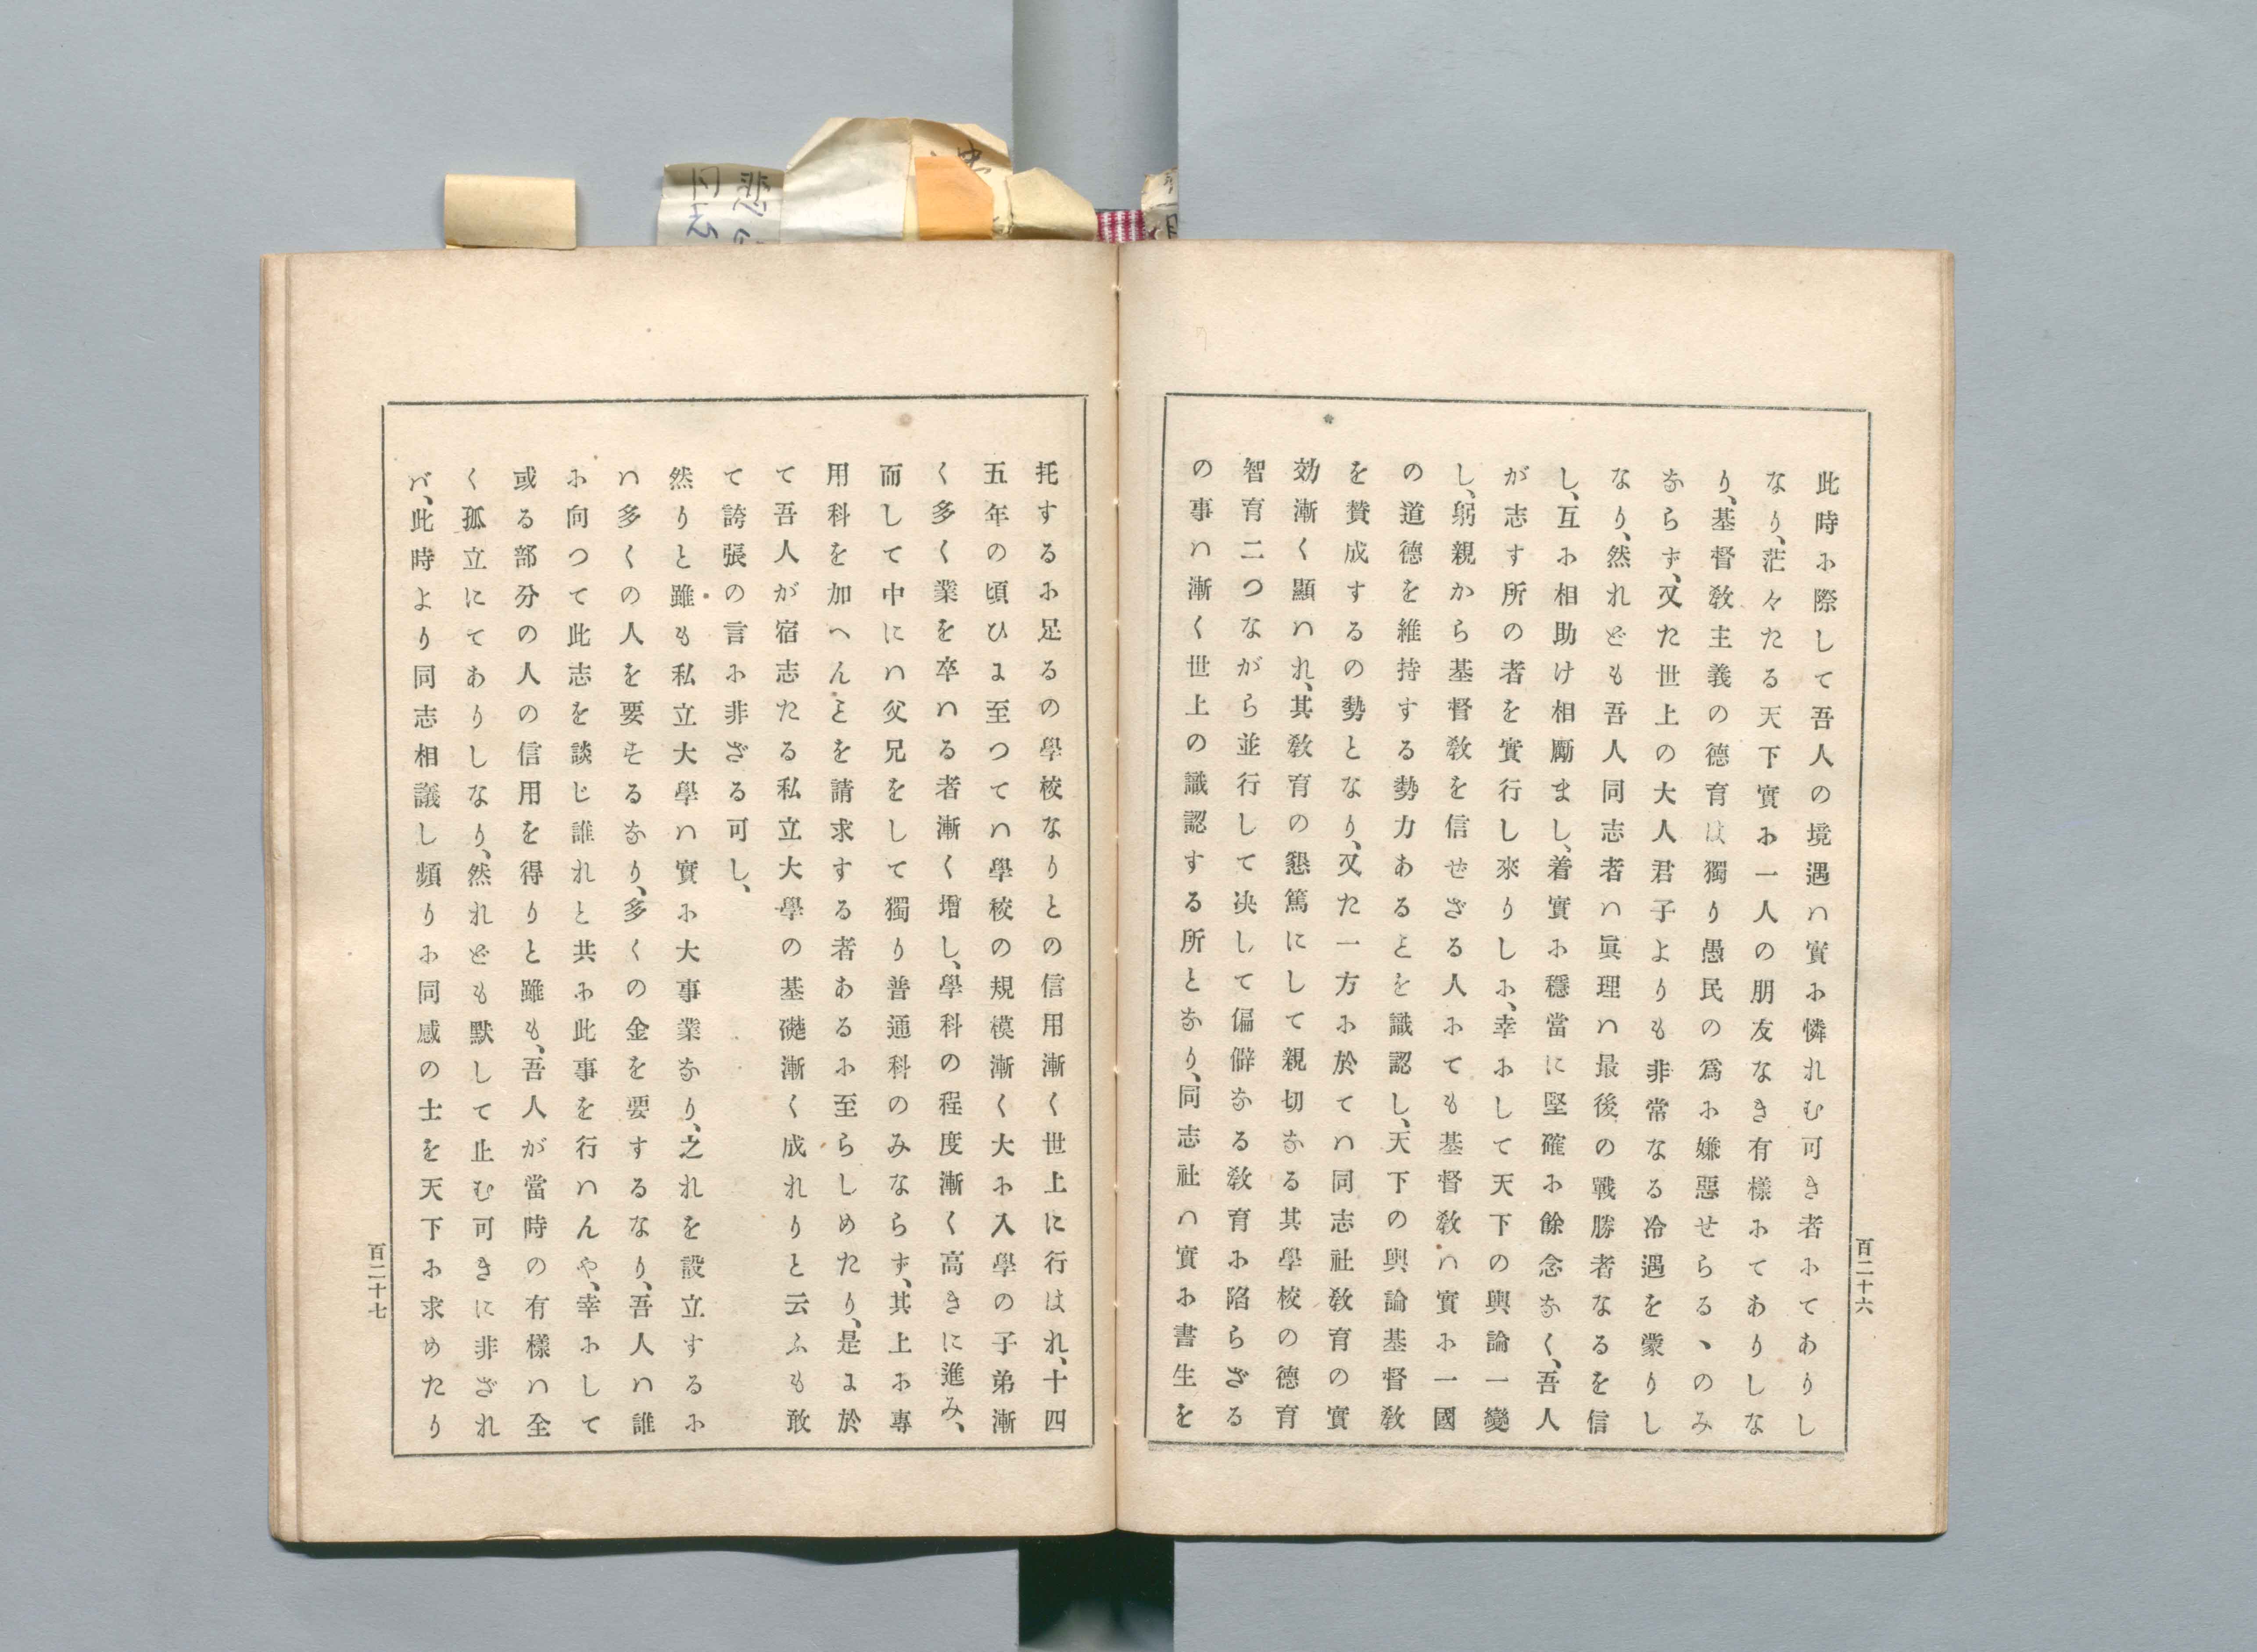 此時に際して吾人の境遇ハ實に憐れむ可き者にてありし
なり、茫々たる天下實に一人の朋友なき有樣にてありしな
り、基督敎主義の德育は獨り愚民の爲に嫌惡せらるゝのみ
ならず、又た世上の大人君子よりも非常なる冷遇を蒙りし
なり、然れども吾人同志者ハ眞理ハ最後の戰勝者なるを信
し、互に相助け相勵まし、着實に穩當に堅確に餘念なく、吾人
が志す所の者を實行し來りしに、幸にして天下の輿論一變
し、躬親から基督敎を信せざる人にても基督敎ハ實に一國
の道德を維持する勢力あるヿを識認し、天下の輿論基督敎
を賛成するの勢となり、又た一方に於てハ同志社敎育の實
効漸く顯ハれ、其敎育の懇篤にして親切なる其學校の德育
智育二つながら並行して决して偏僻なる敎育に陷らざる
の事ハ漸く世上の識認する所となり、同志社ハ實に書生を
百二十六
托するに足るの學校なりとの信用漸く世上に行はれ、十四
五年の頃ひに至つてハ學校の規模漸く大に入學の子弟漸
く多く業を卒ハる者漸く增し、學科の程度漸く高きに進み、
而して中にハ父兄をして獨り普通科のみならず、其上に專
用科を加へんヿを請求する者あるに至らしめたり、是に於
て吾人が宿志たる私立大學の基礎漸く成れりと云ふも敢
て誇張の言に非ざる可し、
然りと雖も私立大學ハ實に大事業なり、之れを設立するに
ハ多くの人を要するなり、多くの金を要するなり、吾人ハ誰
に向つて此志を談じ誰れと共に此事を行ハんや、幸にして
或る部分の人の信用を得りと雖も、吾人が當時の有樣ハ全
く孤立にてありしなり、然れども默して止む可きに非ざれ
バ、此時より同志相議し頻りに同感の士を天下に求めたり
百二十七